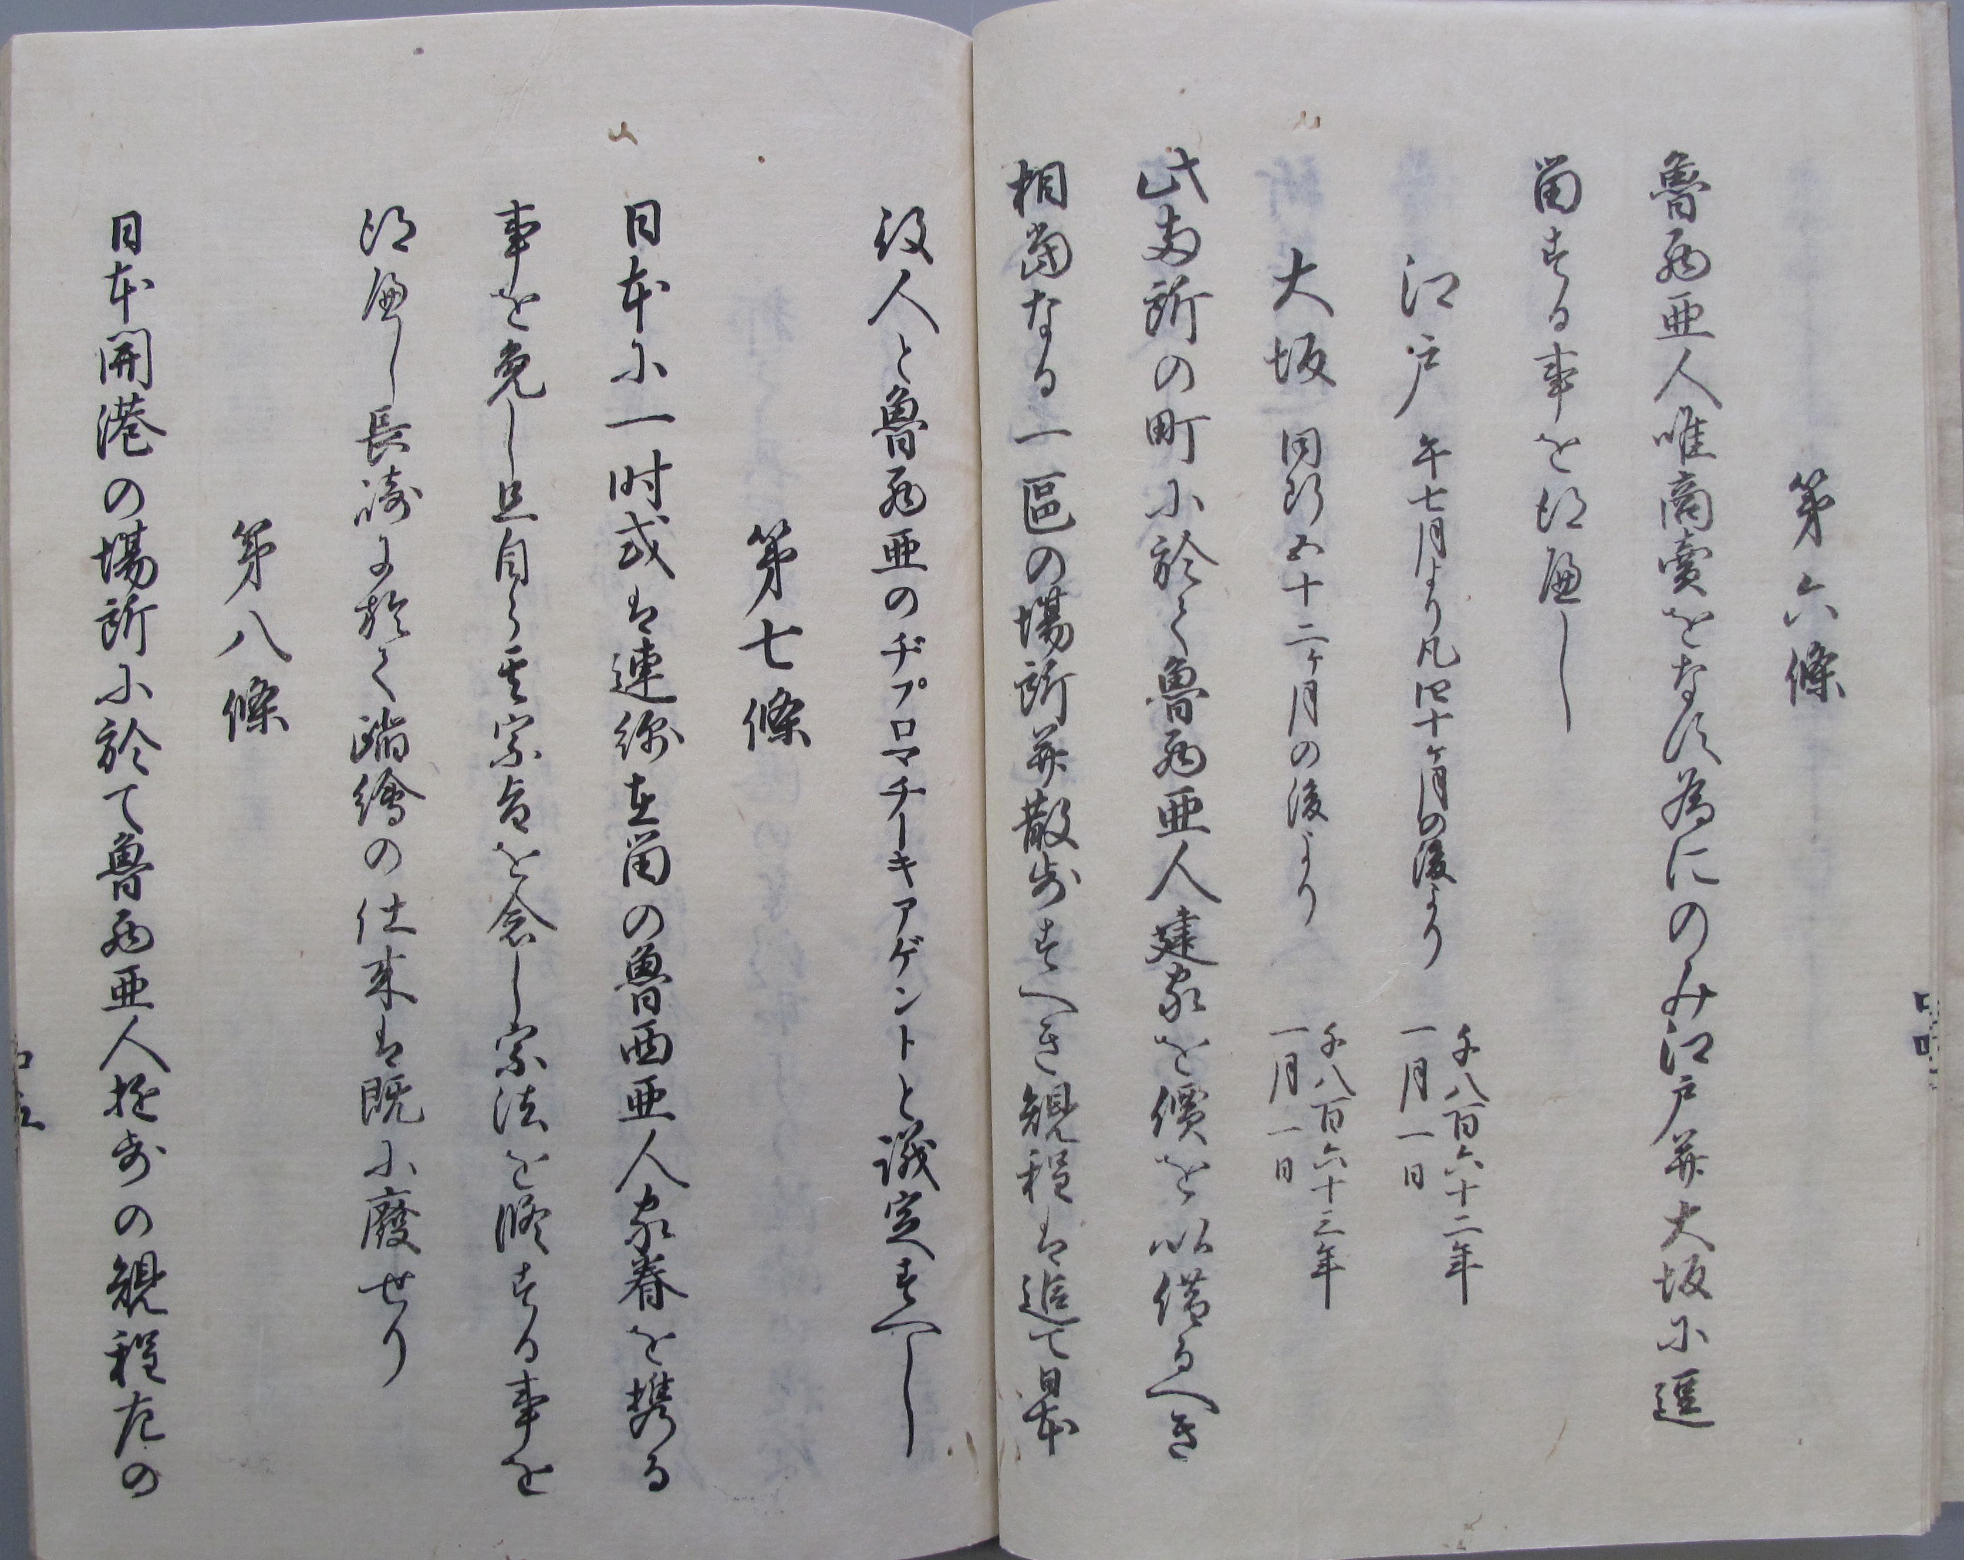 第六條
魯西亜人唯商賣をなす為にのみ江戸并大坂に逗
留する事を得へし
江戸 午七月より凡四十ヶ月の後より 千八百六十二年一月一日
大坂 同断五十二ヶ月の後より 千八百六十三年一月一日
此両所の町に於て魯西亜人建家を價を以借るへき
相當なる一區の場所并散歩すへき規程は追て日本
役人と魯西亜のヂプロマチーキアゲントと議定すへし
第七條
日本に一時或は連綿在留の魯西亜人家眷を携る
事を免し且自ら其宗旨を念し宗法を修する事を
得へし長崎に於て踏繪の仕来は既に廢せり
第八條
日本開港の場所に於て魯西亜人遊歩の規程左の